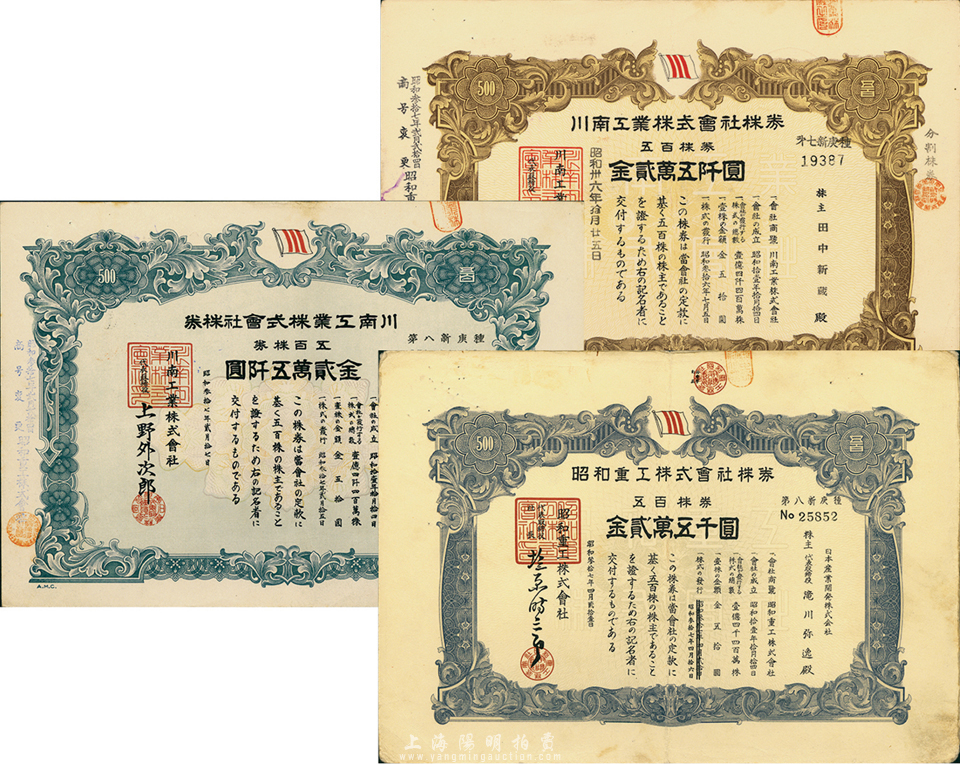 500
川南工業株式會社株券
五百株券
金貳萬五阡圓
種庚新七第
19387
株主 田中新蔵 殿
一會社商號 川南工業株式會社
一會社の成立 昭和拾壹年拾月拾四日
一會社が發行する株式の總數 壹億四阡四百萬株
一壹株の金額 金五拾圓
一株式の發行 昭和叁拾六年七月五日
この株券は當會社の定款に
基く五百株の株主であること
を證するため右の記名者に
交付するものである
昭和卅六年拾月廿五日
川南工業
分割株
商号変更
500
川南工業株式會社株券
五百株券
金貳萬五阡圓
種庚新八第
一會社の成立 昭和拾壹年拾月拾四日
一會社が發行する株式の總數 壹億四阡四百萬株
一壹株の金額 金五拾圓
一株式の發行 昭和叁拾七年貳月拾五日
この株券は當會社の定款に
基く五百株の株主であること
を證するため右の記名者に
交付するものである
昭和叁拾七年貳月拾七日
川南工業株式會社
上野外次郎
商号変更
A.M.C.
500
昭和重工株式會社株券
五百株券
金貳萬五千圓
種庚新八第
No 25852
日本産業開発株式会社
株主 代表取締役 滝川弥逸殿
一會社商號 昭和重工株式會社
一會社の成立 昭和拾壹年拾月拾四日
一會社が發行する株式の總數 壹億四千四百萬株
一壹株の金額 金五拾圓
一株式の發行 昭和叁拾七年四月拾六日
この株券は當會社の定款に
基く五百株の株主であること
を證するため右の記名者に
交付するものである
昭和叁拾七年四月貳拾壹日
昭和重工株式會社
上海陽明拍賣
www.yangmingauction.com